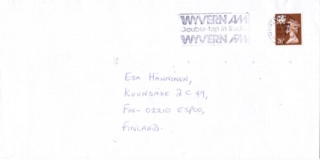 WYVERN AM
Double-top in
WYVERN AM
ESA HÄNNINEN,
KUUNSADE 2 C 49,
FIN- 02210 ESPOO,
FINLAND.